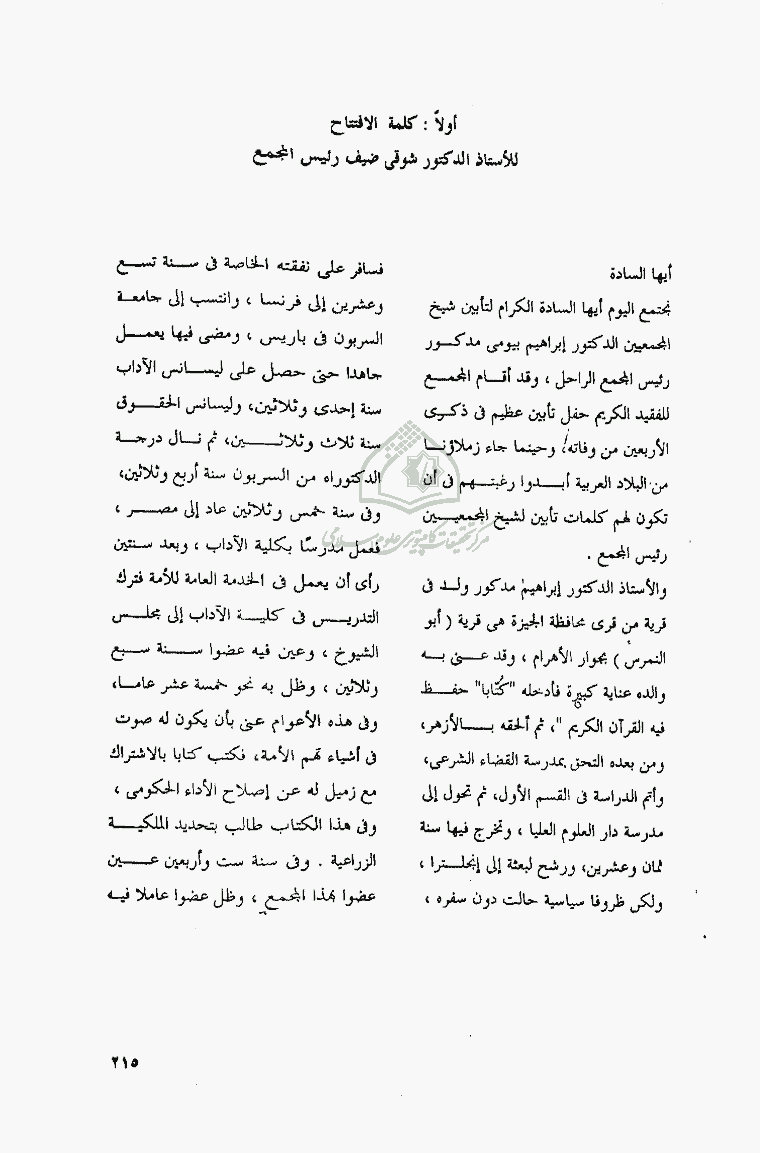 أولاً : كلمة الافتتاح
للأستاذ الدكتور شوقى ضيف رئيس المجمع
أيها السادة
نجتمع اليوم أيها السادة الكرام لتأبين شيخ
المجمعيين الدكتور إبراهيم بيومى مدكور
رئيس المجمع الراحل ، وقد أقام المجمع
للفقيد الكريم حفل تأبين عظيم فى ذكرى
الأربعين من وفاته، وحينما جاء زملاؤنا
من البلاد العربية أبدوا رغبتهم فى أن
تكون لهم كلمات تأبين لشيخ المجمعيين
رئيس المجمع .
والأستاذ الدكتور إبراهيم مدكور ولد فى
قرية من قرى محافظة الجيزة هى قرية ( أبو
النمرس ) بجوار الأهرام ، وقد عنى به
والده عناية كبيرة فأدخله "كُتّابا" حفظ
فيه القرآن الكريم "، ثم ألحقه بالأزهر،
ومن بعده التحق بمدرسة القضاء الشرعى،
وأتم الدراسة فى القسم الأول، ثم تحول إلى
مدرسة دار العلوم العليا ، وتخرج فيها سنة
ثمان وعشرين، ورشح لبعثة إلى إنجلترا ،
ولكن ظروفا سياسية حالت دون سفره ،
فسافر على نفقته الخاصة فى سنة تسع
وعشرين إلى فرنسا ، وانتسب إلى جامعة
السربون فى باريس ، ومضى فيها يعمل
جاهدا حتى حصل على ليسانس الآداب
سنة إحدى وثلاثين، وليسانس الحقوق
سنة ثلاث وثلاثين، ثم نال درجة
الدكتوراه من السربون سنة أربع وثلاثين،
وفى سنة خمس وثلاثين عاد إلى مصر ،
فعمل مدرسًا بكلية الآداب ، وبعد سنتين
رأى أن يعمل فى الخدمة العامة للأمة فترك
التدريس فى كلية الآداب إلى مجلس
الشيوخ ، وعين فيه عضوا سنة سبع
وثلاثين ، وظل به نحو خمسة عشر عاما،
وفى هذه الأعوام عنى بأن يكون له صوت
فى أشياء تهم الأمة، فكتب كتابا بالاشتراك
مع زميل له عن إصلاح الأداء الحكومى ،
وفى هذا الكتاب طالب بتحديد الملكية
الزراعية . وفى سنة ست وأربعين عين
عضوا بهذا المجمع ، وظل عضوا عاملا فيه
مركز تحقيقات كامپيوترى علوم اسلامى
٢١٥